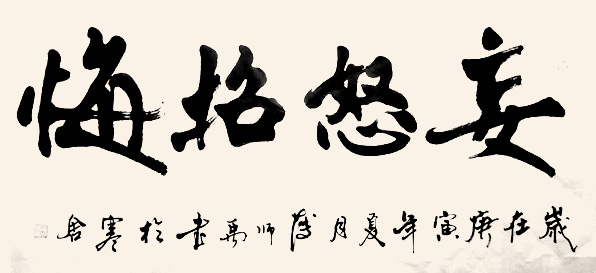 妄怒招悔
岁在庚寅年夏月 师禹书於寒舍